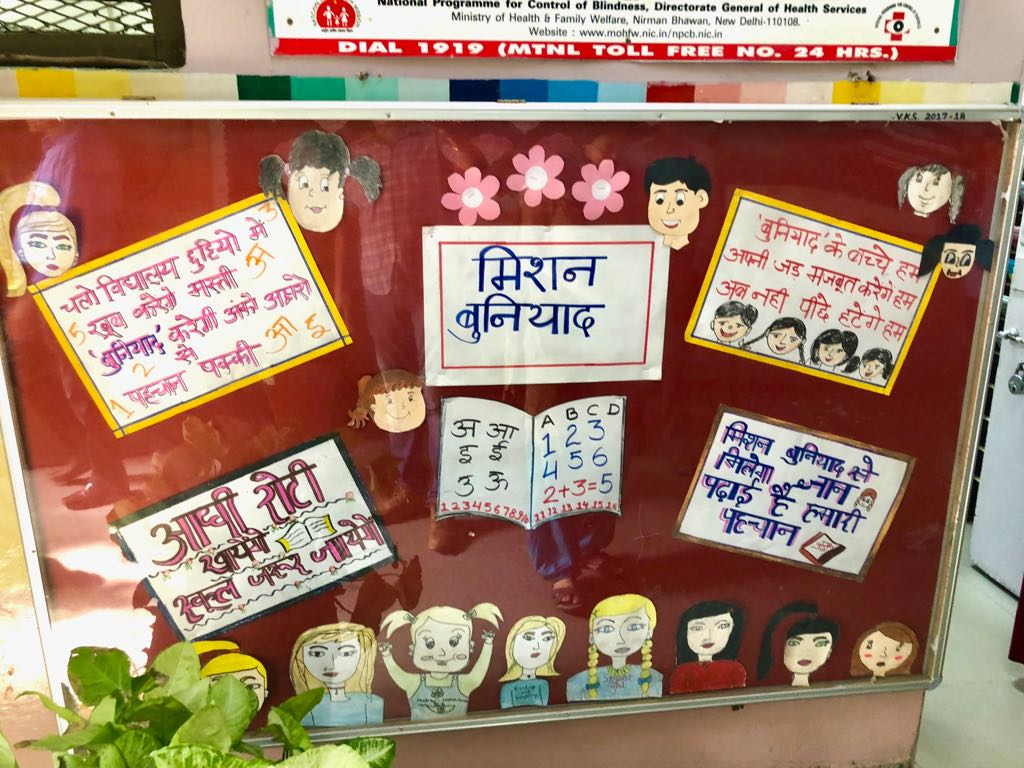 National Programme for Control of Blindness, Directorate General of Health Services
Ministry of Health & Family Welfare, Nirman Bhawan, New Delhi-110108.
Website : www.mohfw.nic.in/npcb.nic.in
DIAL 1919 (MTNL TOLL FREE NO. 24 HRS.)
V.K.S. 2017-18
चलो विद्यालय छुट्टियो में
खूब करेगे मस्ती
'बुनियाद' करेगी अपने आधारो
से
पहचान पक्की
3
अ
5
2
1
आ इ
मिशन
बुनियाद
'बुनियाद' के बच्चे हम
अपनी जड़ मजबूत करेगे हम
अब नही पीछे हटेगे हम
अ आ
इ ई
उ ऊ
1 2 3 4 5 6 7 8 9 10
A B C D
1 2 3
4 5 6
2+3=5
11 12 13 14 15 16
आधी रोटी
खायेगें
स्कूल जरूर जायेगें
मिशन बुनियाद से
मिलेगा ज्ञान
पढ़ाई है हमारी
पहचान